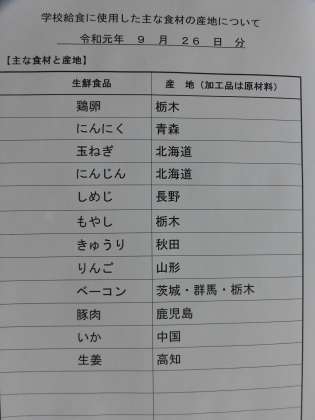 学校給食に使用した主な食材の産地について
令和元年 9 月 26 日 分
【主な食材と産地】
生鮮食品 産 地（加工品は原材料）
鶏卵 栃木
にんにく 青森
玉ねぎ 北海道
にんじん 北海道
しめじ 長野
もやし 栃木
きゅうり 秋田
りんご 山形
ベーコン 茨城・群馬・栃木
豚肉 鹿児島
いか 中国
生姜 高知